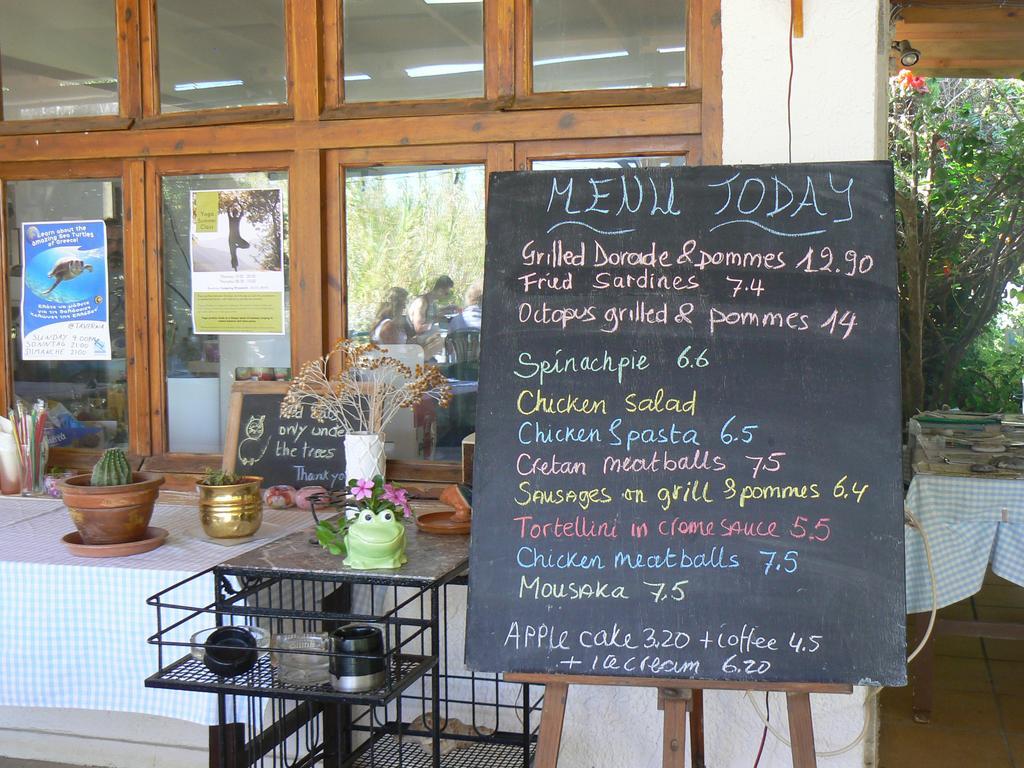 MENU TODAY
Grilled Dorade & pommes 12.90
Fried Sardines 7.4
Octopus grilled & pommes 14
Spinachpie 6.6
Chicken Salad
Chicken & pasta 6.5
Cretan meatballs 7.5
Sausages on grill & pommes 6.4
Tortellini in creme sauce 5.5
Chicken meatballs 7.5
Mousaka 7.5
Apple cake 3.20 + coffee 4.5
+ icecream 6.20
Learn about the
amazing Sea Turtles
of Greece!
@TAVERNA
SUNDAY 9.00PM
SONNTAG 21:00
DIMANCHE 21:00
Yoga
Summer
Class
only under
the trees
Thank you